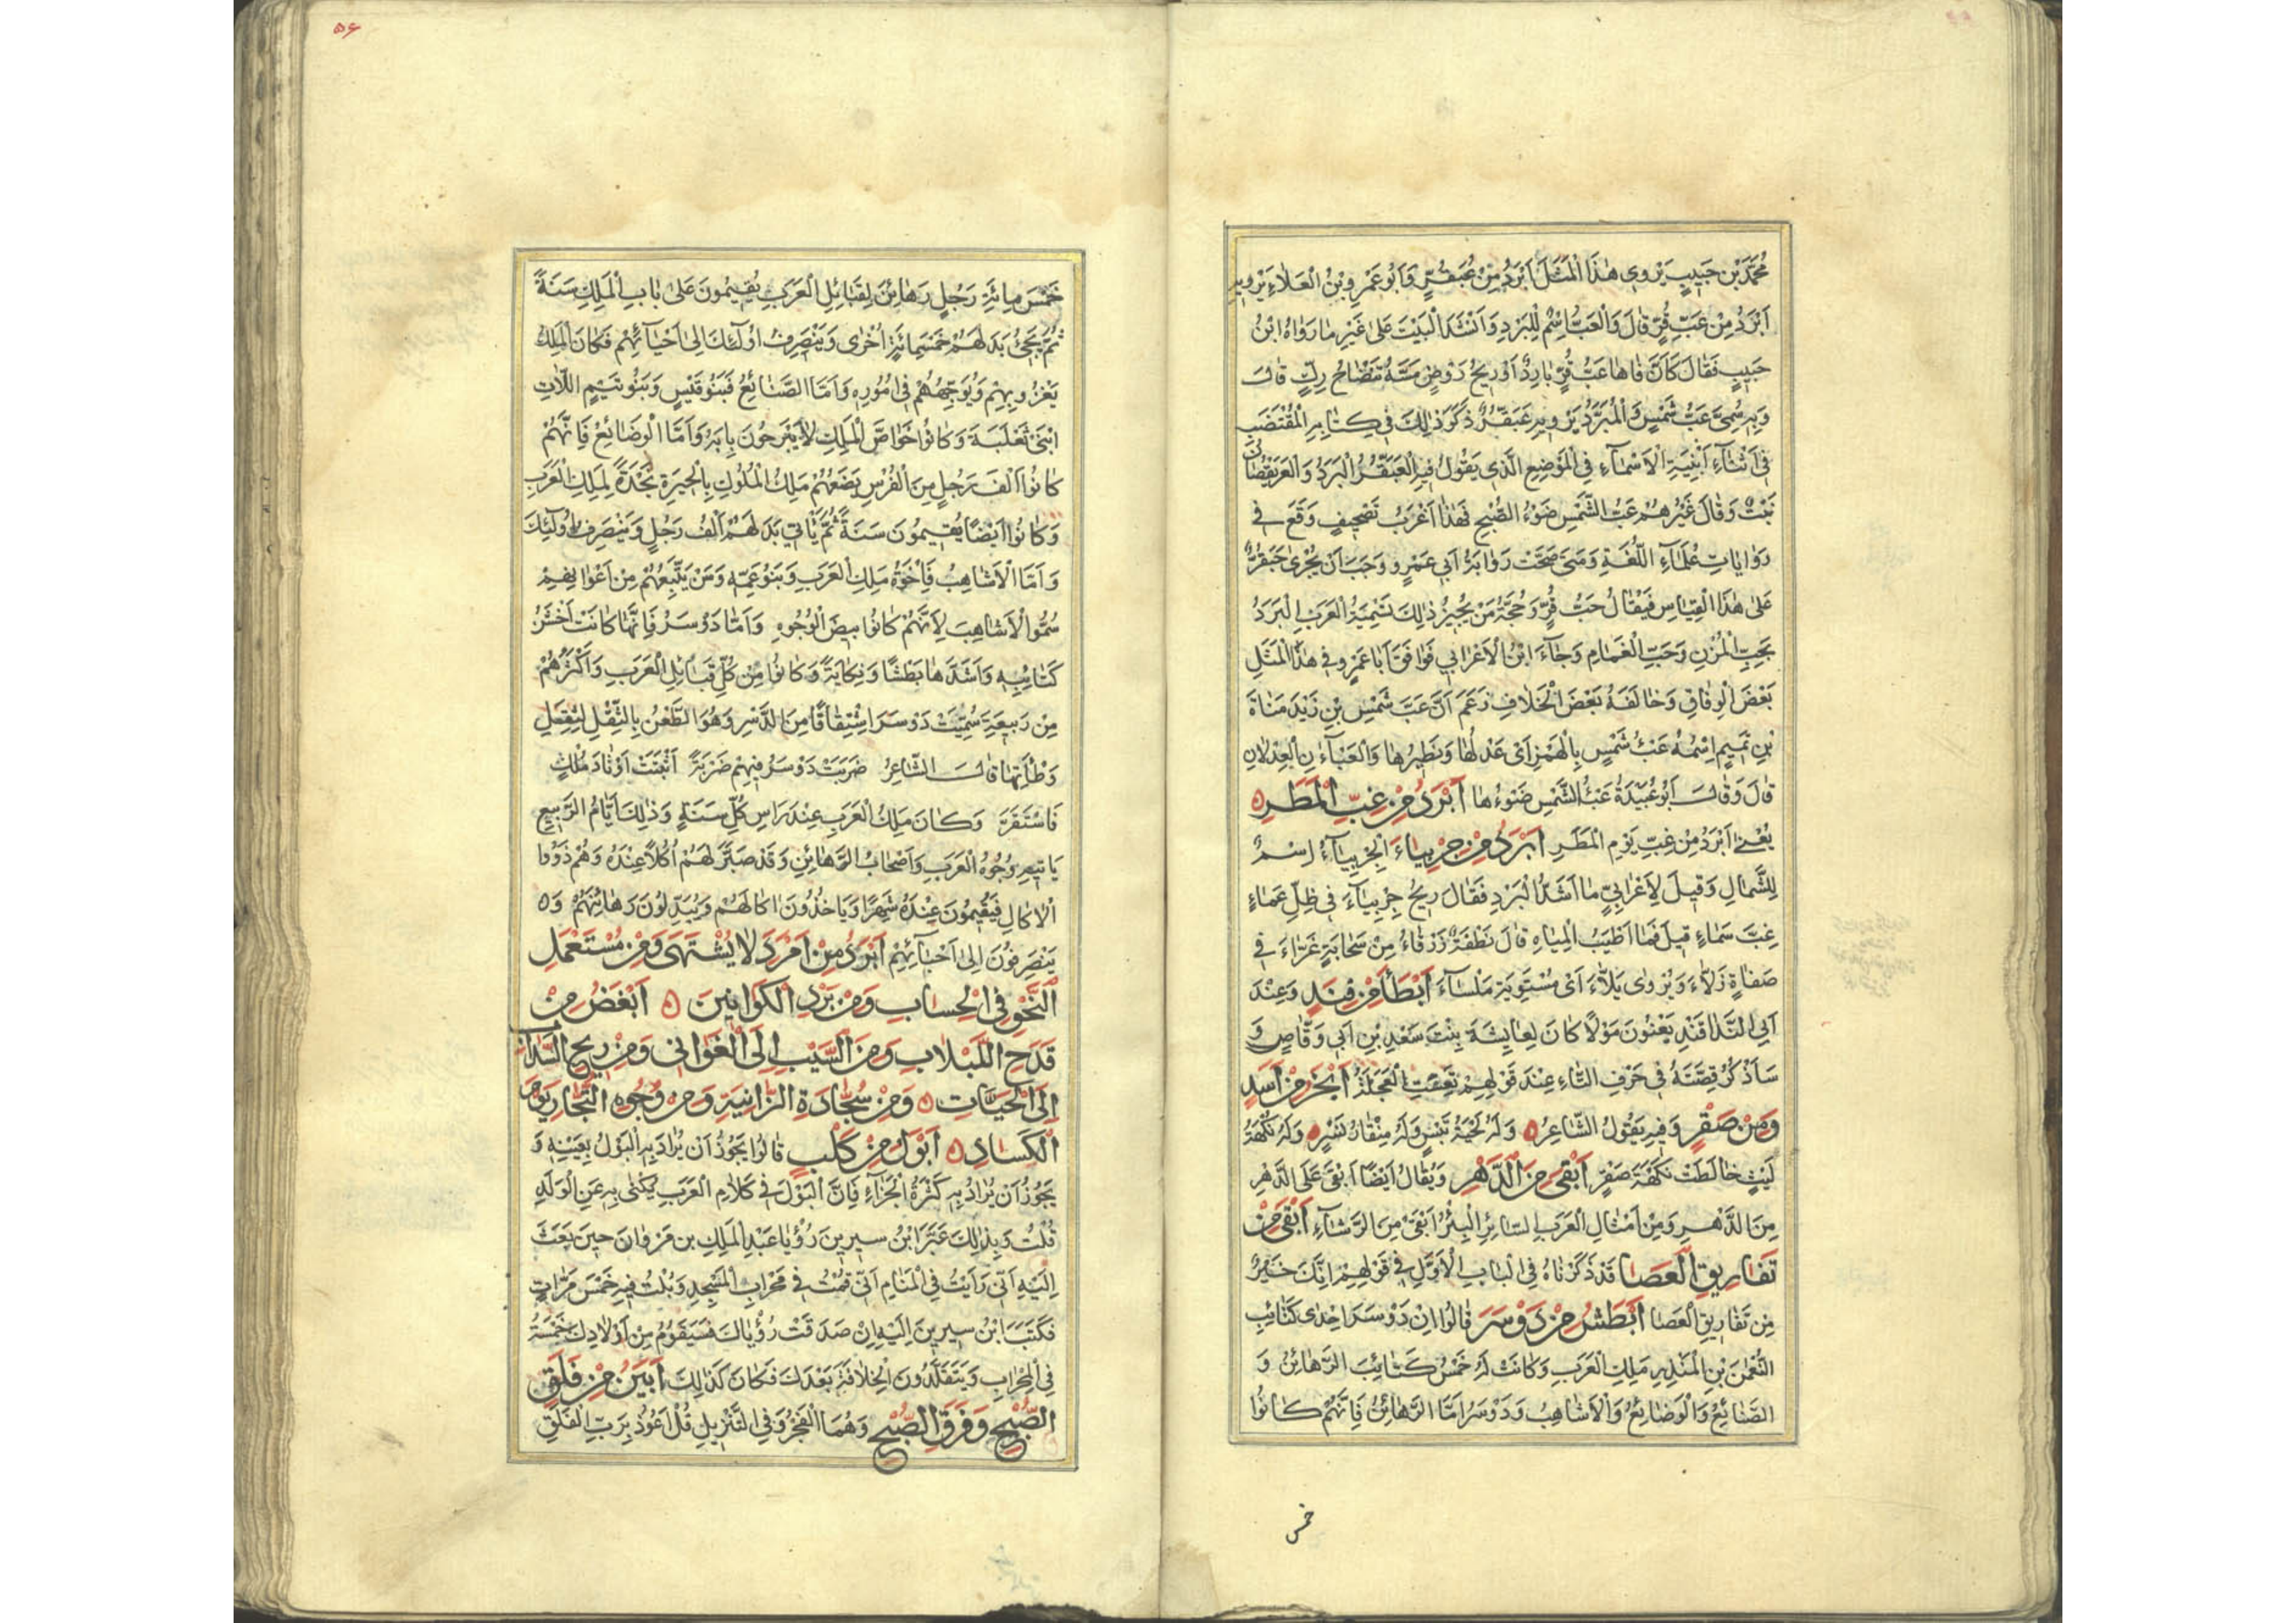 مُحَمَّدُ بْنُ حَبِيبٍ يَرْوِي هٰذَا الْمَثَلَ اَبْرَدُ مِنْ عَبَقُرٍّ وَاَبُو عَمْرِو بْنُ الْعَلَاءِ يَرْوِيهِ
اَبْرَدُ مِنْ عَبِّ قُرٍّ قَالَ وَالْعَبُّ اِسْمٌ لِلْبَرَدِ وَاَنْشَدَ الْبَيْتَ عَلٰى غَيْرِ مَا رَوَاهُ ابْنُ
حَبِيبٍ فَقَالَ كَاَنَّ فَاهَا عَبُّ قُرٍّ بَارِدٌ اَوْ رِيحُ رَوْضٍ مَسَّهُ تَنْضَاحُ رِكٍّ قَالَ
وَبِهِ سُمِّيَ عَبُّ شَمْسٍ وَالْمُبَرَّدُ يَرْوِيهِ عَبَقُرٌّ ذَكَرَ ذٰلِكَ فِي كِتَابِهِ الْمُقْتَضَبِ
فِي اَثْنَاءِ اَبْنِيَةِ الْاَسْمَاءِ فِي الْمَوْضِعِ الَّذِي يَقُولُ فِيهِ الْعَبَقُرُّ الْبَرَدُ وَالْعَرَيْقُصَانُ
نَبْتٌ وَقَالَ غَيْرُهُمْ عَبُّ الشَّمْسِ ضَوْءُ الصُّبْحِ فَهٰذَا اَغْرَبُ تَصْحِيفٍ وَقَعَ فِي
رِوَايَاتِ عُلَمَاءِ اللُّغَةِ وَمَتٰى صَحَّتْ رِوَايَةُ اَبِي عَمْرٍو وَجَبَ اَنْ يُجْرٰى حَبَقُرٌّ
عَلٰى هٰذَا الْقِيَاسِ فَيُقَالُ حَبُّ قُرٍّ وَحُجَّةُ مَنْ يُجِيزُ ذٰلِكَ تَسْمِيَةُ الْعَرَبِ الْبَرَدَ
بِحَبِّ الْمُزْنِ وَحَبِّ الْغَمَامِ وَجَاءَ ابْنُ الْاَعْرَابِي فَوَافَقَ اَبَا عَمْرٍو فِي هٰذَا الْمَثَلِ
بَعْضَ الْوِفَاقِ وَخَالَفَهُ بَعْضَ الْخِلَافِ زَعَمَ اَنَّ عَبَّ شَمْسِ بْنِ زَيْدِ مَنَاةَ
بْنِ تَمِيمٍ اِسْمُهُ عَبْءُ شَمْسٍ بِالْهَمْزِ اَيْ عَدْلُهَا وَنَظِيرُهَا وَالْعَبْآنِ الْعِدْلَانِ
قَالَ وَقَالَ اَبُو عُبَيْدَةَ عَبْءُ الشَّمْسِ ضَوْءُهَا اَبْرَدُ مِنْ غِبِّ الْمَطَرِ
يَعْنِي اَبْرَدُ مِنْ غِبِّ يَوْمِ الْمَطَرِ اَبْرَدُ مِنْ جِرْبِيَاءَ الْجِرْبِيَاءُ اِسْمٌ
لِلشَّمَالِ وَقِيلَ لِاَعْرَابِيٍّ مَا اَشَدُّ الْبَرَدِ فَقَالَ رِيحُ جِرْبِيَاءَ فِي ظِلِّ عَمَاءٍ
غِبَّ سَمَاءٍ قِيلَ فَمَا اَطْيَبُ الْمِيَاهِ قَالَ نَطْفَةٌ زَرْقَاءُ مِنْ سَحَابَةٍ غَرَّاءَ فِي
صَفَاةٍ زَلَّاءَ وَيُرْوٰى بَلَّاءَ اَيْ مُسْتَوِيَةٍ مَلْسَاءَ اَبْطَأُ مِنْ فِنْدٍ وَعِنْدَ
اَبِي النَّدَا قَنْدٍ يَعْنُونَ مَوْلًا كَانَ لِعَايِشَةَ بِنْتِ سَعْدِ بْنِ اَبِي وَقَّاصٍ وَ
سَاَذْكُرُ قِصَّتَهُ فِي حَرْفِ التَّاءِ عِنْدَ قَوْلِهِمْ تَعِسَتِ الْعَجَلَةُ اَبْخَرُ مِنْ اَسَدٍ
وَمِنْ صَقْرٍ وَفِيهِ يَقُولُ الشَّاعِرُ وَلَهُ لِحْيَةُ تَيْسٍ وَلَهُ مِنْقَارُ نَسْرٍ وَلَهُ نَكْهَةُ
لَيْثٍ خَالَطَتْ نَكْهَةَ صَقْرٍ اَبْقٰى مِنَ الدَّهْرِ وَيُقَالُ اَيْضًا اَبْقٰى عَلَى الدَّهْرِ
مِنَ الدَّهْرِ وَمِنْ اَمْثَالِ الْعَرَبِ السَّائِرِ الْبِئْرُ اَبْقٰى مِنَ الرِّشَاءِ اَبْقٰى مِنْ
تَفَارِيقِ الْعَصَا قَدْ ذَكَرْنَاهُ فِي الْبَابِ الْاَوَّلِ فِي قَوْلِهِمْ اِنَّكَ خَيْرٌ
مِنْ تَفَارِيقِ الْعَصَا اَبْطَشُ مِنْ دَوْسَرَ قَالُوا اِنَّ دَوْسَرَ اِحْدٰى كَتَائِبِ
النُّعْمٰنِ بْنِ الْمُنْذِرِ مَلِكِ الْعَرَبِ وَكَانَتْ لَهُ خَمْسُ كَتَائِبَ الرَّهَائِنُ وَ
الصَّنَائِعُ وَالْوَضَائِعُ وَالْاَشَاهِبُ وَدَوْسَرُ اَمَّا الرَّهَائِنُ فَاِنَّهُمْ كَانُوا
خمس
۵۶
خَمْسَ مِائَةِ رَجُلٍ رَهَائِنَ لِقَبَائِلِ الْعَرَبِ يُقِيمُونَ عَلٰى بَابِ الْمَلِكِ سَنَةً
ثُمَّ يَجِيءُ بَدَلَهُمْ خَمْسُمِائَةٍ اُخْرٰى وَيَنْصَرِفُ اُولٰئِكَ اِلٰى اَحْيَائِهِمْ فَكَانَ الْمَلِكُ
يَغْزُو بِهِمْ وَيُوَجِّهُهُمْ فِي اُمُورِهِ وَاَمَّا الصَّنَائِعُ فَبَنُو قَيْسٍ وَبَنُو تَيْمِ اللَّاتِ
ابْنَيْ ثَعْلَبَةَ وَكَانُوا خَوَاصَّ الْمَلِكِ لَا يَبْرَحُونَ بَابَهُ وَاَمَّا الْوَضَائِعُ فَاِنَّهُمْ
كَانُوا اَلْفَ رَجُلٍ مِنَ الْفُرْسِ يَضَعُهُمْ مَلِكُ الْمُلُوكِ بِالْحِيرَةِ نَجْدَةً لِمَلِكِ الْعَرَبِ
وَكَانُوا اَيْضًا يُقِيمُونَ سَنَةً ثُمَّ يَأْتِي بَدَلَهُمْ اَلْفُ رَجُلٍ وَيَنْصَرِفُ اُولٰئِكَ
وَاَمَّا الْاَشَاهِبُ فَاِخْوَةُ مَلِكِ الْعَرَبِ وَبَنُو عَمِّهِ وَمَنْ يَتْبَعُهُمْ مِنْ اَعْوَانِهِمْ
سُمُّوا الْاَشَاهِبَ لِاَنَّهُمْ كَانُوا بِيضَ الْوُجُوهِ وَاَمَّا دَوْسَرُ فَاِنَّهَا كَانَتْ اَخْشَنُ
كَتَائِبِهِ وَاَشَدَّهَا بَطْشًا وَنِكَايَةً وَكَانُوا مِنْ كُلِّ قَبَائِلِ الْعَرَبِ وَاَكْثَرُهُمْ
مِنْ رَبِيعَةَ سُمِّيَتْ دَوْسَرَ اشْتِقَاقًا مِنَ الدَّسْرِ وَهُوَ الطَّعْنُ بِالثِّقْلِ لِثِقْلِ
وَطْأَتِهَا قَالَ الشَّاعِرُ ضَرَبَتْ دَوْسَرُ فِيهِمْ ضَرْبَةً اَثْبَتَتْ اَوْتَادَ مُلْكٍ
فَاسْتَقَرَّ وَكَانَ مَلِكُ الْعَرَبِ عِنْدَ رَاسِ كُلِّ سَنَةٍ وَذٰلِكَ اَيَّامُ الرَّبِيعِ
يَاتِيهِ وُجُوهُ الْعَرَبِ وَاَصْحَابُ الرَّهَائِنِ وَقَدْ صَيَّرَ لَهُمْ اُكُلًا عِنْدَهُ وَهُمْ ذَوُوا
الْاٰكَالِ فَيُقِيمُونَ عِنْدَهُ شَهْرًا وَيَاخُذُونَ اٰكَالَهُمْ وَيُبَدِّلُونَ رَهَائِنَهُمْ وَ
يَنْصَرِفُونَ اِلٰى اَحْيَائِهِمْ اَبْرَدُ مِنْ اَمْرَدَ لَا يُشْتَهَى وَمِنْ مُسْتَعْمِلِ
النَّحْوِ فِي الْحِسَابِ وَمِنْ بَرْدِ الْكَوَانِينِ اَبْغَضُ مِنْ
قَدَحِ اللَّبْلَابِ وَمِنَ الشَّيْبِ اِلَى الْغَوَانِي وَمِنْ رِيحِ السَّذَابِ
اِلَى الْحَيَّاتِ وَمِنْ سَجَّادَةِ الزَّانِيَةِ وَمِنْ وُجُوهِ التُّجَّارِ يَوْمَ
الْكَسَادِ اَبْوَلُ مِنْ كَلْبٍ قَالُوا يَجُوزُ اَنْ يُرَادَ بِهِ الْبَوْلُ بِعَيْنِهِ وَ
يَجُوزُ اَنْ يُرَادَ بِهِ كَثْرَةُ الْجِرَاءِ فَاِنَّ الْبَوْلَ فِي كَلَامِ الْعَرَبِ يُكَنّٰى بِهِ عَنِ الْوَلَدِ
قُلْتُ وَبِذٰلِكَ عَبَّرَ ابْنُ سِيرِينَ رُؤْيَا عَبْدِ الْمَلِكِ بن مَرْوَانَ حِينَ بَعَثَ
اِلَيْهِ اَنِّي رَاَيْتُ فِي الْمَنَامِ اَنِّي قُمْتُ فِي مَحْرَابِ الْمَسْجِدِ وَبُلْتُ فِيهِ خَمْسَ مَرَّاتٍ
فَكَتَبَ ابْنُ سِيرِينَ اِلَيْهِ اِنْ صَدَقَتْ رُؤْيَاكَ فَسَيَقُومُ مِنْ اَوْلَادِكَ خَمْسَةٌ
فِي الْمِحْرَابِ وَيَتَقَلَّدُونَ الْخِلَافَةَ بَعْدَكَ فَكَانَ كَذٰلِكَ اَبْيَنُ مِنْ فَلَقِ
الصُّبْحِ وَفَرَقِ الصُّبْحِ وَهُمَا الْفَجْرُ وَفِي التَّنْزِيلِ قُلْ اَعُوذُ بِرَبِّ الْفَلَقِ